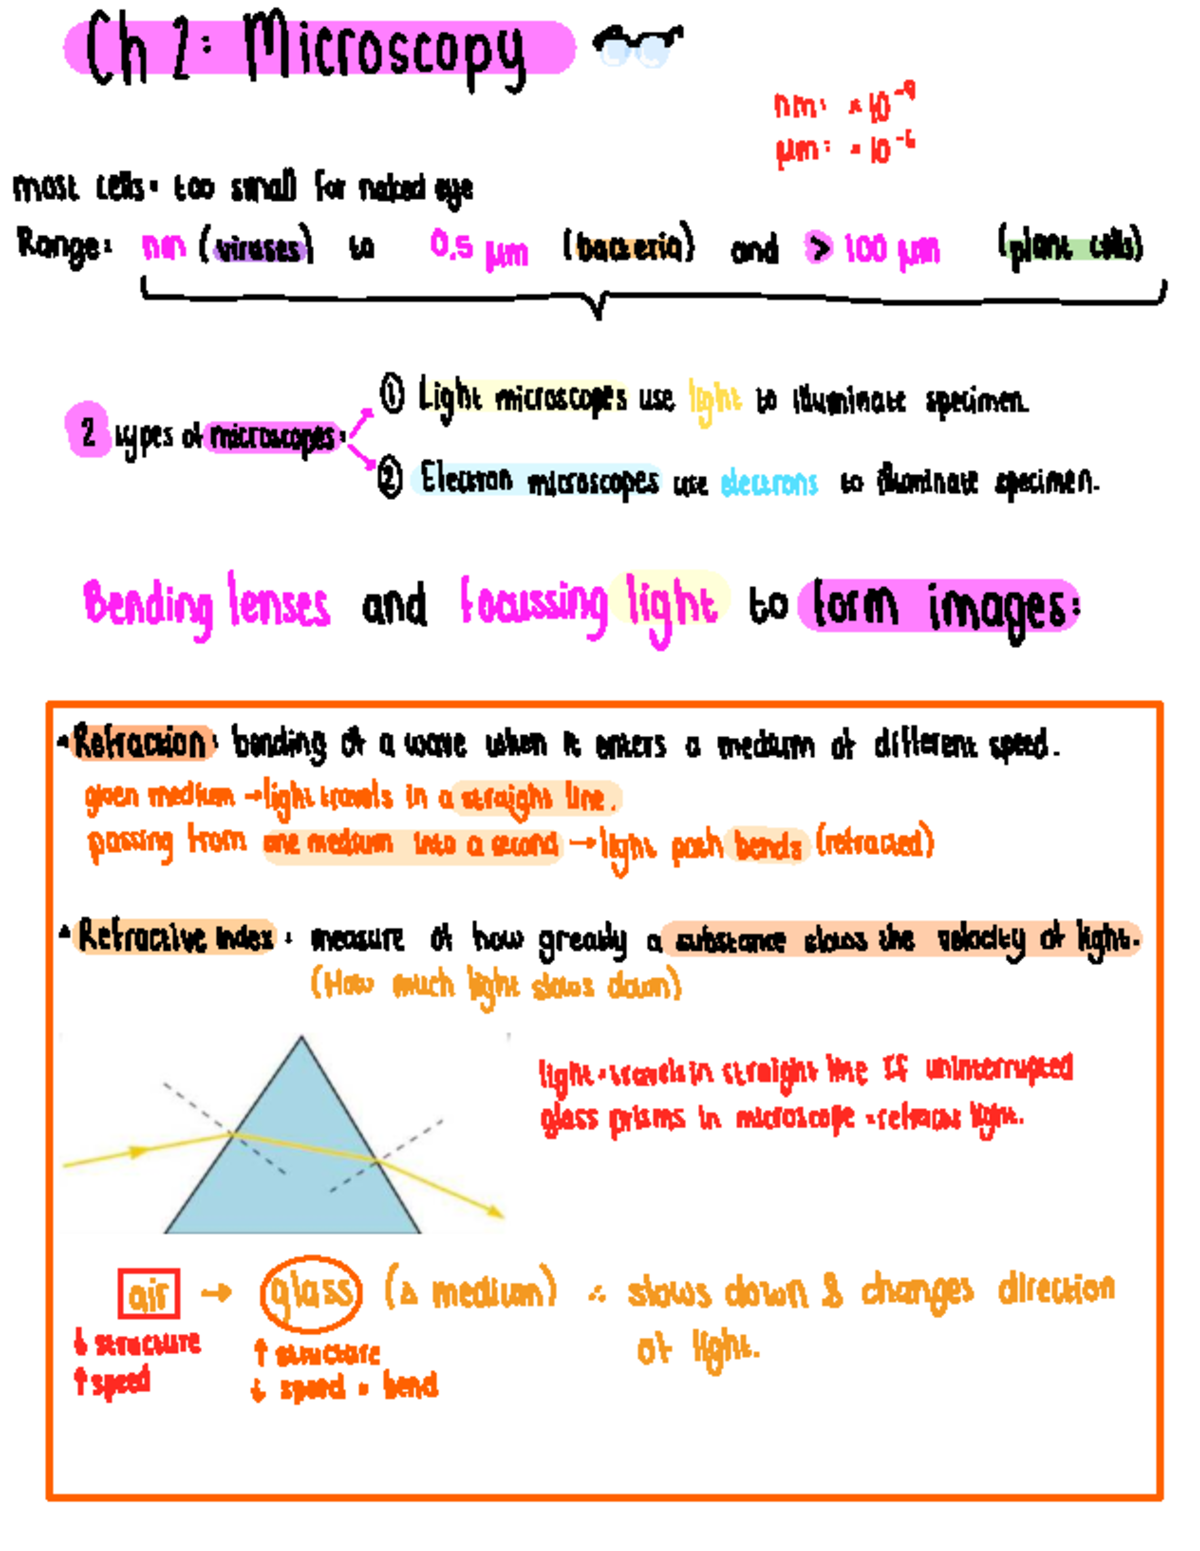 Ch 2: Microscopy
nm: ×10⁻⁹
μm: ×10⁻⁶
most cells = too small for naked eye
Range: nm (viruses) to 0.5 μm (bacteria) and > 100 μm (plant cells)
① Light microscopes use light to illuminate specimen.
2 types of microscopes:
② Electron microscopes use electrons to illuminate specimen.
Bending lenses and focussing light to form images:
Refraction: bending of a wave when it enters a medium of different speed.
given medium → light travels in a straight line.
passing from one medium into a second → light path bends (refracted)
Refractive index: measure of how greatly a substance slows the velocity of light.
(How much light slows down)
light = travels in straight line IF uninterrupted
glass prisms in microscope = refracts light.
air → glass (Δ medium) ∴ slows down & changes direction
of light.
↓ structure
↑ speed
↑ structure
↓ speed = bend